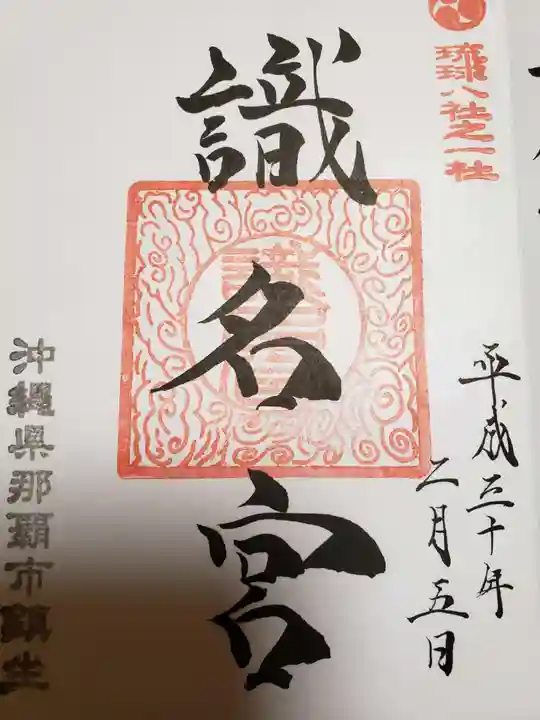 琉球八社之一社
平成三十年
二月五日
識名宮
識名宮
沖縄県那覇市鎮座